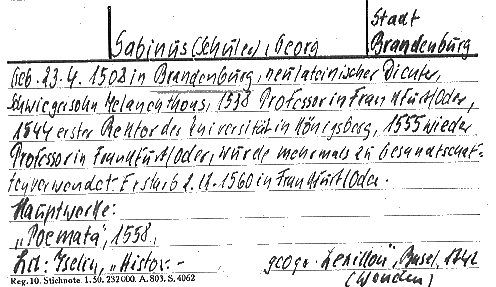 Stadt
Sabinus (Schuler), Georg Brandenburg
Geb. 23.4. 1508 in Brandenburg, neulateinischer Dichter,
Schwiegersohn Melanchthons, 1538 Professor in Frankfurt/Oder,
1544 erster Rektor der Universität in Königsberg, 1555 wieder
Professor in Frankfurt/Oder, wurde mehrmals zu Gesandtschaf-
ten verwendet. Er starb 2.12.1560 in Frankfurt/Oder.
Hauptwerke:
„Poemata", 1558.
Lit.: Iselin, „Histor.-geogr. Lexikon", Basel, 1742
(Wenden)
Reg. 10. Stichnote. 1. 50. 232000. A. 803. S. 4062